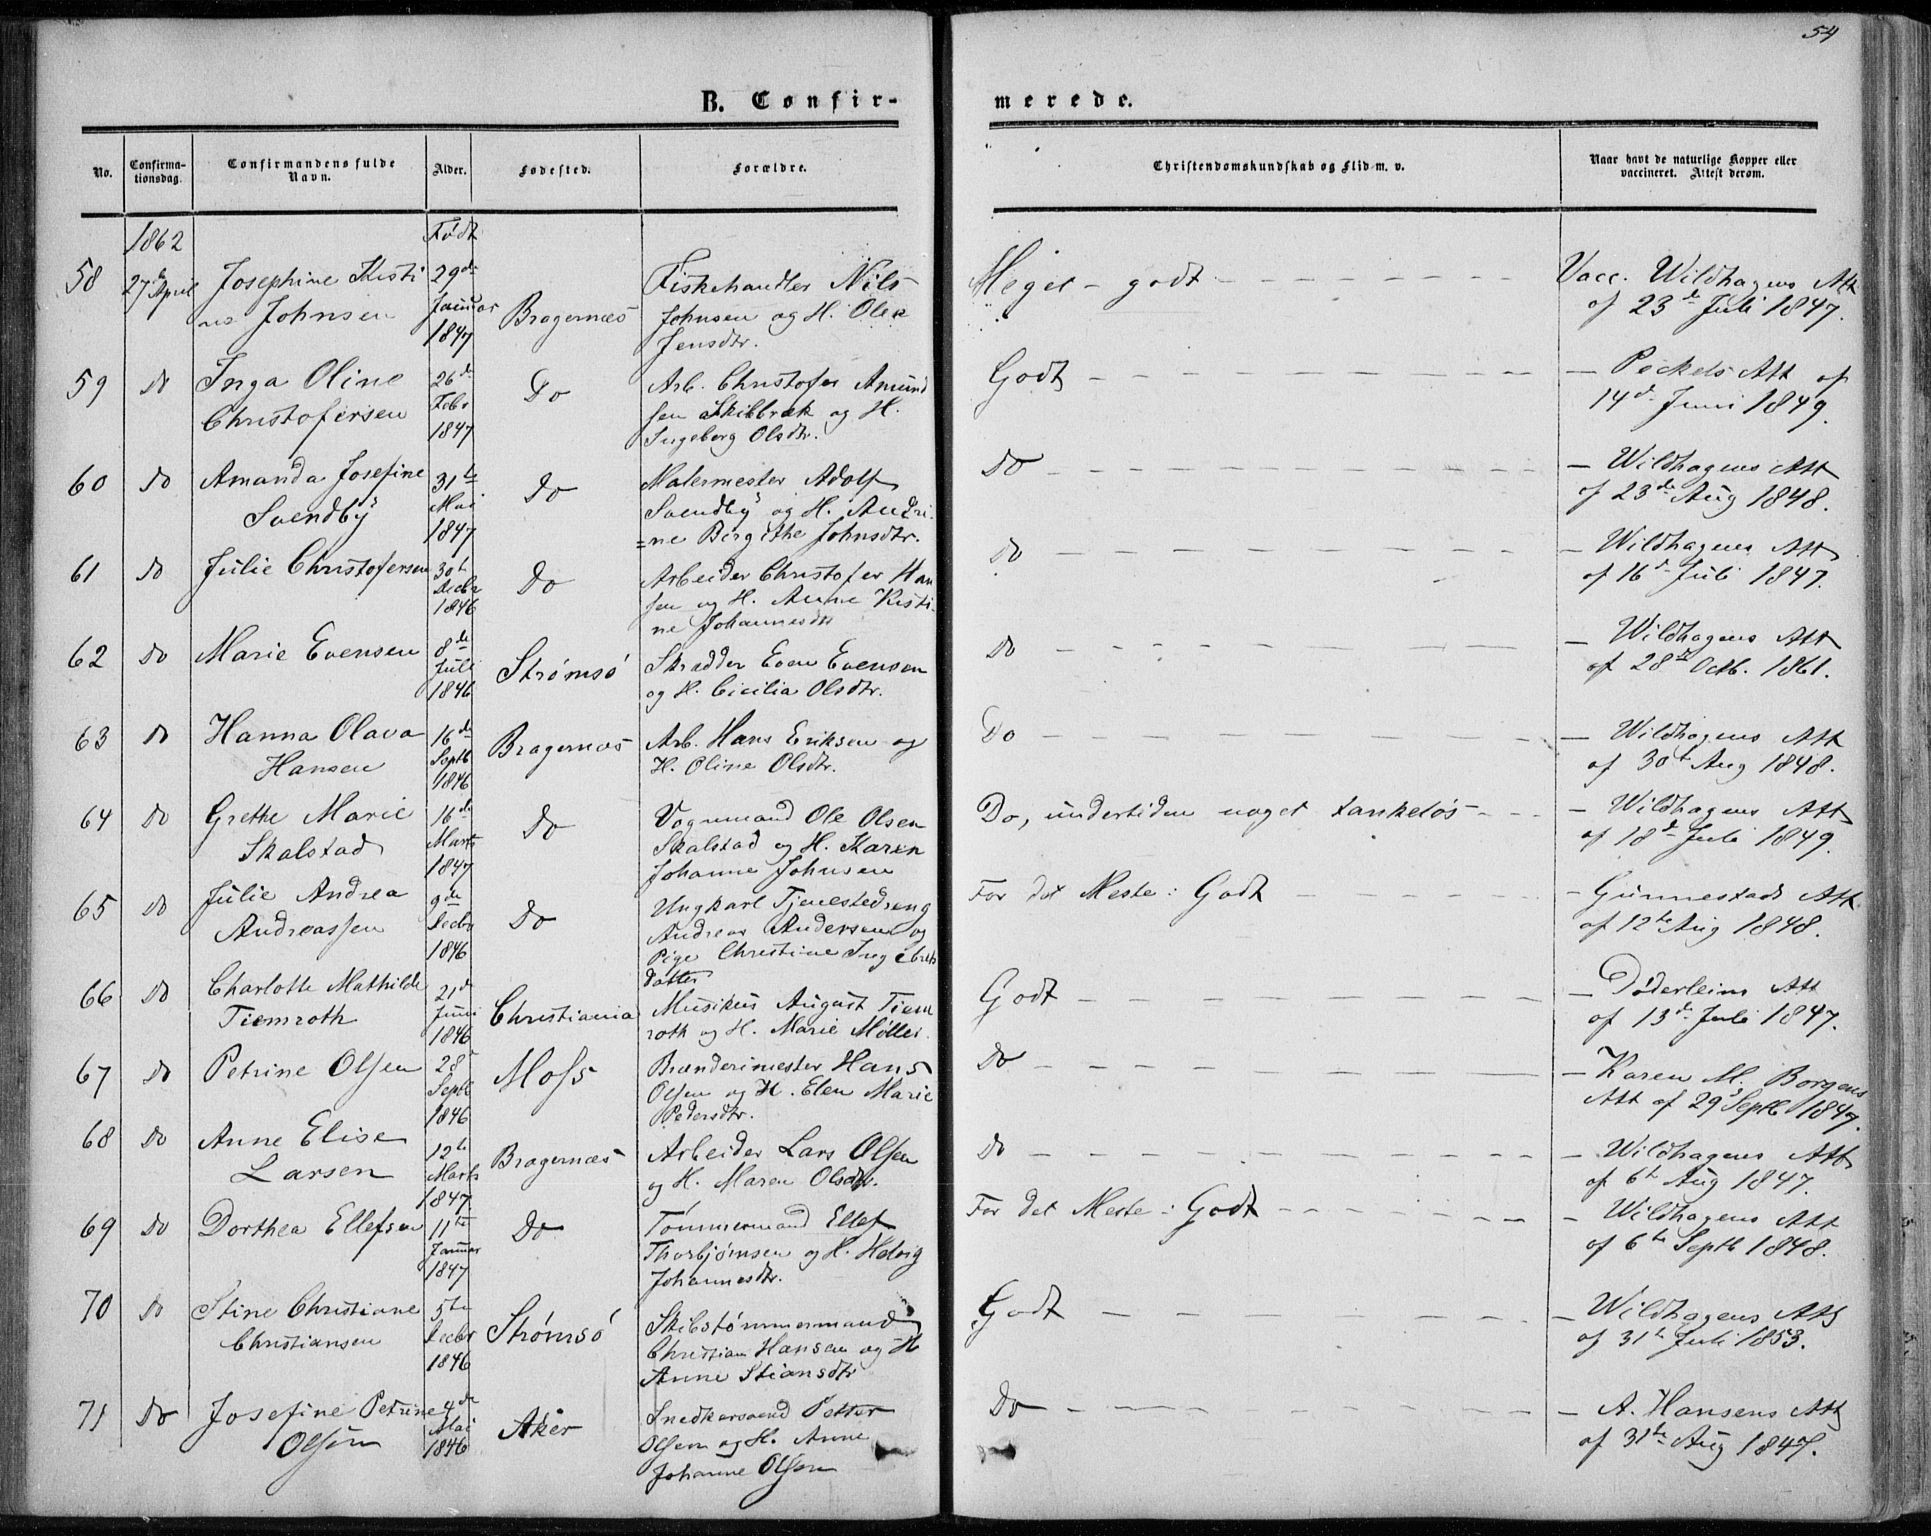 54
B. Confir-
merede.
No.
Confirma-
tionsdag.
Confirmandens fulde
Navn.
Alder.
Fødested.
Forældre.
Christendomskundskab og Flid m. v.
Naar havt de naturlige Kopper eller
vaccineret. Attest derom.
1862
Født
58
27de April
Josephine Kisti
ne Johnsen
29de
Januar
1847
Bragernæs
Fiskehandler Nils
Johnsen og H. Olea
Jensdtr.
Meget godt
Vacc. Wildhagens Att
af 23de Juli 1847.
59
Do
Inga Oline
Christofersen
26de
Febr
1847
Do
Arb. Christofer Amund
sen Skibbræk og H.
Ingeborg Olsdtr.
Godt
— Peckels Att af
14de Juni 1849.
60
Do
Amanda Josefine
Svendby
31te
Mai
1847
Do
Malermester Adolf
Svendby og H. Andri-
=ne Birgithe Johnsdtr.
Do
— Wildhagens Att
af 23de Aug 1848.
61
Do
Julie Christofersen
30t
Decbr
1846
Do
Arbeider Christofer Han
sen og H. Anne Kisti-
ne Johannesdtr
Do
— Wildhagens Att
af 16de Juli 1847.
62
Do
Marie Evensen
8de
Juli
1846
Strømsö
Skrædder Even Evensen
og H. Cicilia Olsdtr.
Do
— Wildhagens Att
af 28de Octb. 1861.
63
Do
Hanna Olava
Hansen
16de
Septb
1846
Bragernæs
Arb. Hans Eriksen og
H. Oline Olsdtr.
Do
— Wildhagens Att
af 30t Aug 1848.
64
Do
Grethe Marie
Skalstad
16de
Marts
1847
Do
Vognmand Ole Olsen
Skalstad og H. Karen
Johanne Johnsen
Do, undertiden noget tankeløs
— Wildhagens Att
af 18de Juli 1849.
65
Do
Julie Andrea
Andreassen
9de
Decbr
1846
Do
Ungkarl Tjenestedreng
Andreas Andersen og
Pige Christine Ingebrets
datter
For det Meste: Godt
— Gunnestads Att
af 12te Aug 1848.
66
Do
Charlotte Mathilde
Tiemroth
21de
Juni
1846
Christiania
Musikus August Tiem
roth og H. Marie Møller.
Godt
— Döderleins Att
af 13de Juli 1847.
67
Do
Petrine Olsen
28
Septb
1846
Moss
Brænderimester Hans
Olsen og H. Elen Marie
Pedersdtr.
Do
— Karen M. Borgens
Att af 29 Septb 1847.
68
Do
Anne Elise
Larsen
12te
Marts
1847.
Bragernæs
Arbeider Lars Olsen
og H. Maren Olsdtr.
Do
— Wildhagens Att
af 6t Aug 1847.
69
Do
Dorthea Ellefsen
11te
Januar
1847
Do
Tømmermand Ellef
Thorbjørnsen og H. Helvig
Johannesdtr.
For det Meste: Godt
— Wildhagens Att
af 6te Septb 1848.
70
Do
Stine Christiane
Christiansen
5te
Decbr
1846
Strømsö
Skibstømmermand
Christian Hansen og H
Anne Stiansdtr
Godt
— Wildhagens Att
af 31te Juli 1853.
71
Do
Josefine Petrine
Olsen
4de
Mai
1846
Aker
Snedkersvend Petter
Olsen og H. Anne
Johanne Olsen
Do
— A. Hansens Att
af 31te Aug 1847.